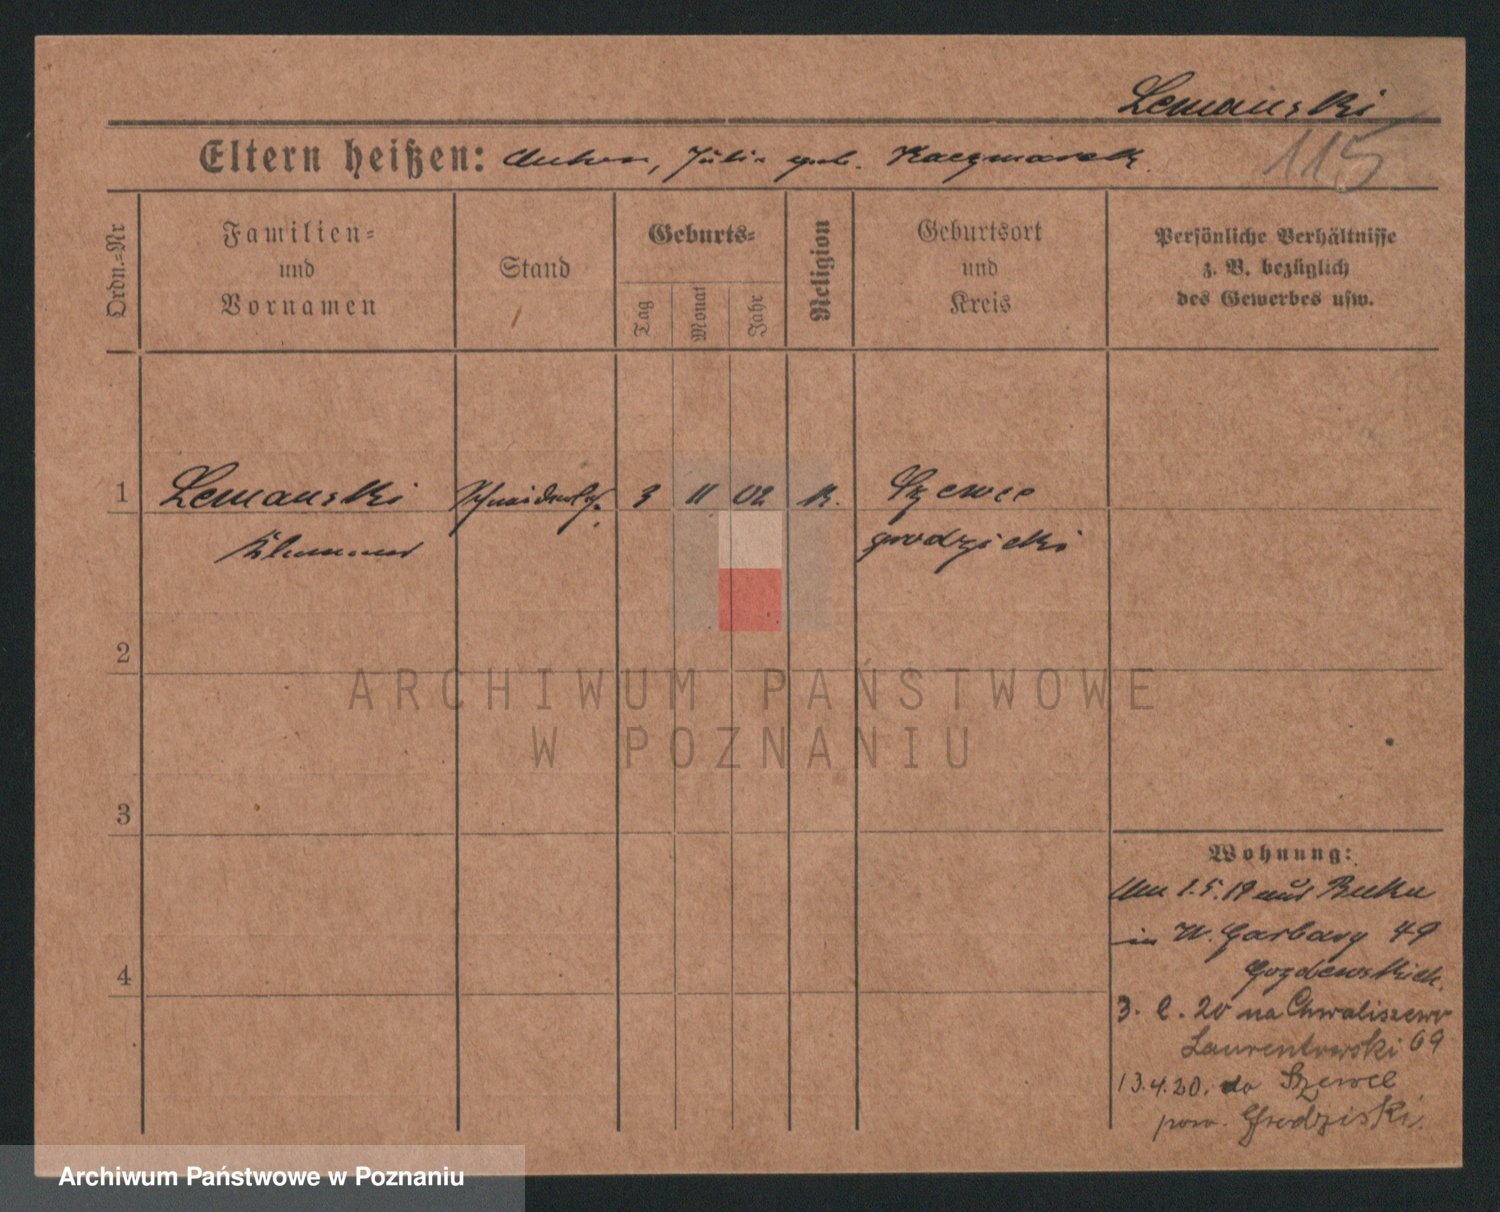 Lemanski
Eltern heißen: Anton, Julia geb. Kaczmarek
115
Ordn.=Nr
Familien=
und
Vornamen
Stand
Geburts=
Tag
Monat
Jahr
Religion
Geburtsort
und
Kreis
Persönliche Verhältnisse
z. B. bezüglich
des Gewerbes usw.
1
Lemanski
Schneiderlg.
3
11
02
K.
Szewce
grodziski
2
ARCHIWUM PAŃSTWOWE
W POZNANIU
3
Wohnung:
1.5.19 aus Buku
in W. Garbary 49
4
3. 2. 20 na Chwaliszewo
Laurentowski 69
13.4.20. do Szewce
pow. Grodziski.
Archiwum Państwowe w Poznaniu